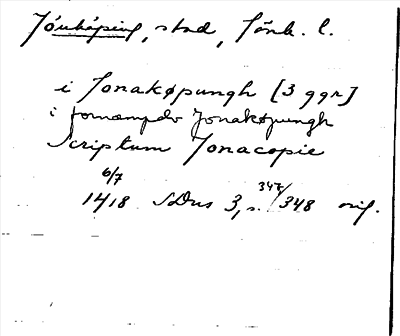 Jönköping, stad, Jönk. l.
i Jonakøpungh [3 ggr]
i fornempdo Jonakøpungh
Scriptum Jonacopie
6/7
1418 SDns 3, s. 347/348 orig.